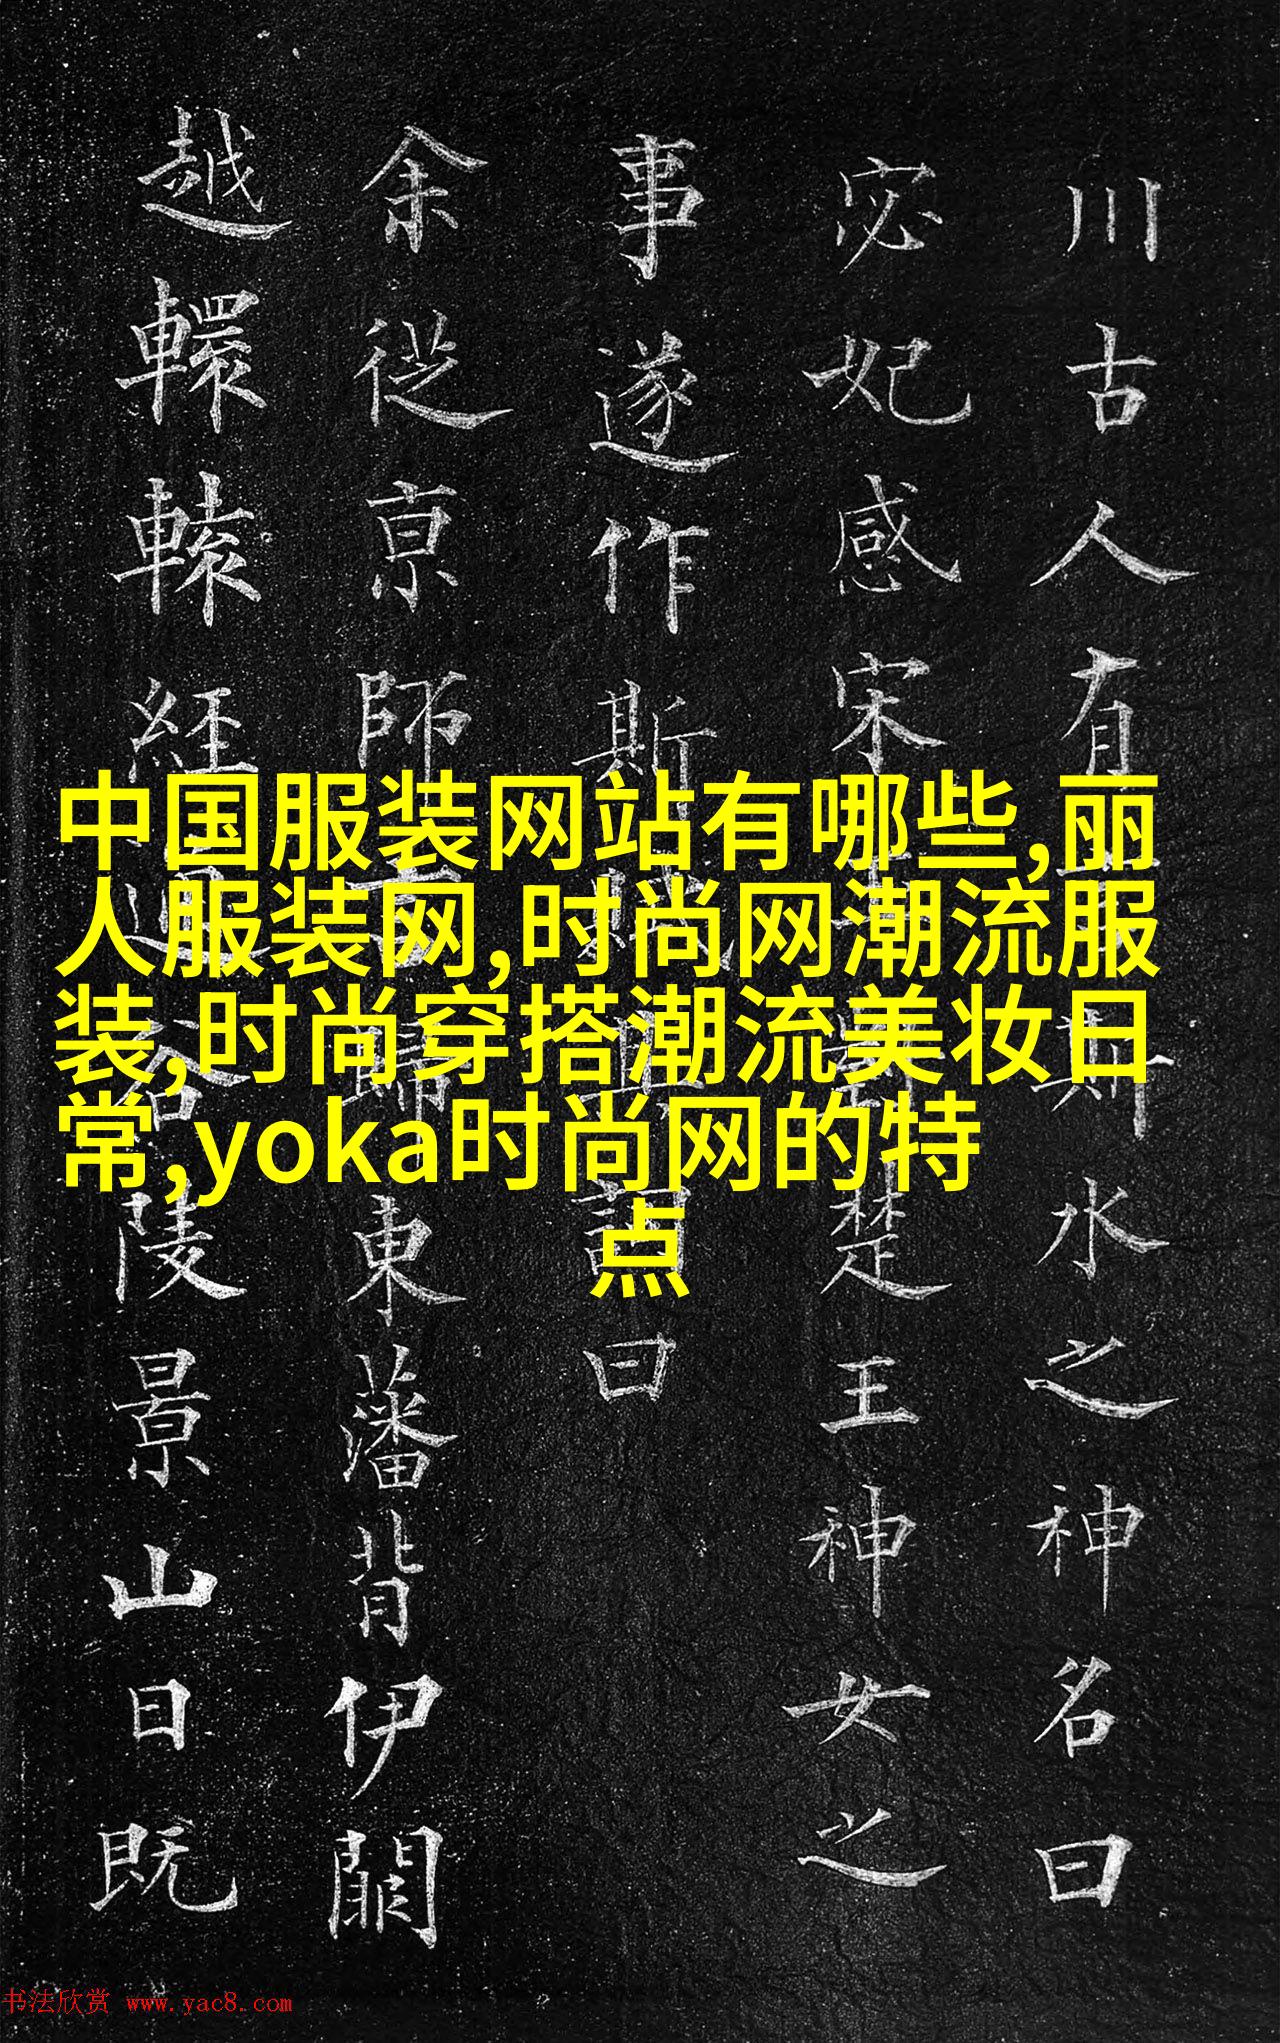 中国服装网站有哪些,丽
人服装网,时尚网潮流服
装,时尚穿搭潮流美妆日
常,yoka时尚网的特
点
川古人有斯水之神名曰
宓妃感宋楚王神女之
事遂作斯賦其詞曰
余從亰師歸東藩背伊闕
越轘轅經通谷陵景山日既
书法欣赏 www.yac8.com